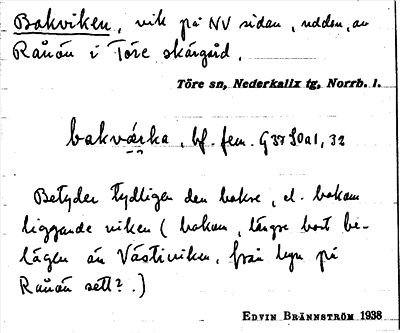 Bakviken, vik på NV sidan, udden, av
Rånön i Töre skärgård.
Töre sn, Nederkalix tg, Norrb. l.
bakvärka, bf. fem. G37 S0a1, 32
Betyder tydligen den bakre, el. bakom
liggande viken (bakom, längre bort be-
lägen än Västiviken, från byn på
Rånön sett?.)
EDVIN BRÄNNSTRÖM 1938